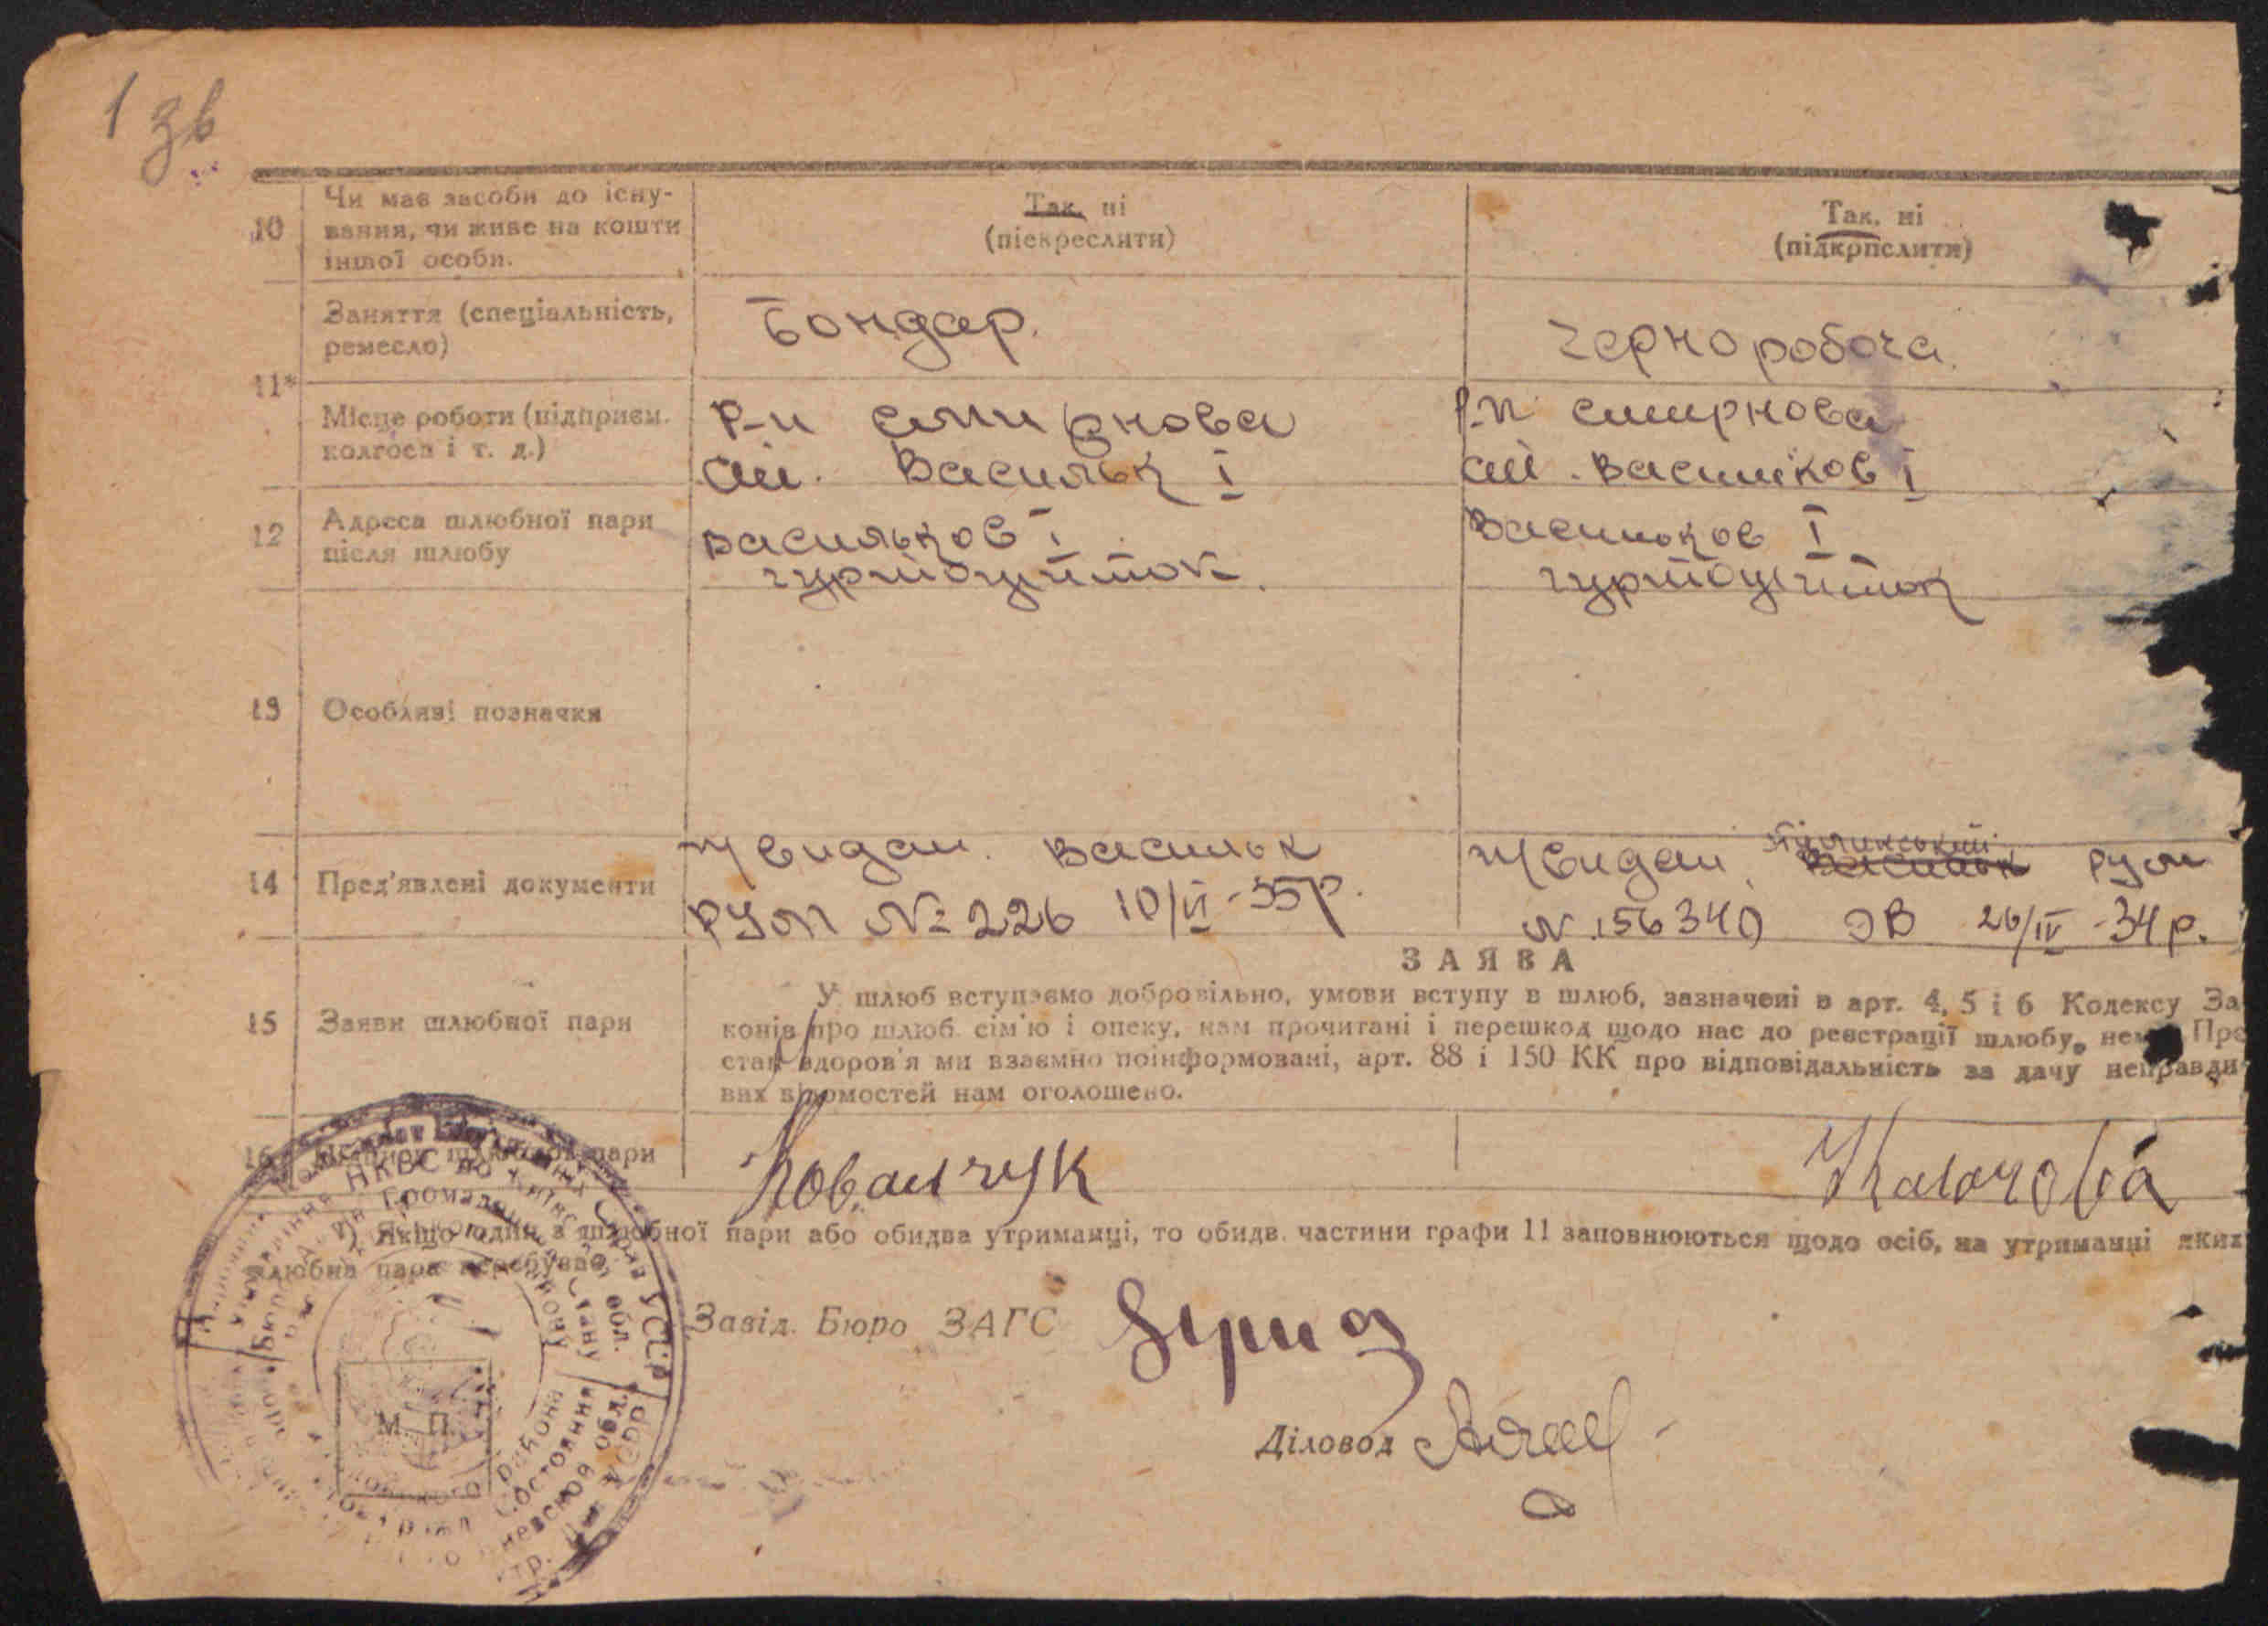 1 зв
10 Чи має засоби до існу-
вання, чи живе на кошти
іншої особи.
Так, ні
(піекреслити)
Так, ні
(підкрпслити)
Заняття (спеціальність,
ремесло)
Бондар.
Чернороboча
11*
Місце роботи (підприєм.
колгосп і т. д.)
Р-н Смирнова
ст. Васильк I
Р-н Смирнова
ст. Васильков I
12 Адреса шлюбної пари
після шлюбу
Васильков I
гуртожиток.
Васильков I
гуртожиток
13 Особливі позначки
14 Пред'явлені документи
Васильк
РУМ № 226 10/VI-35р.
Васильк РУМ
N 156340 ЭВ 26/IV-34р.
15 Заяви шлюбної пари
ЗАЯВА
У шлюб вступаємо добровільно, умови вступу в шлюб, зазначені в арт. 4, 5 і 6 Кодексу За
конів про шлюб. сім'ю і опеку, нам прочитані і перешкод щодо нас до реєстрації шлюбу, нема Про
стан здоров'я ми взаємно поінформовані, арт. 88 і 150 КК про відповідальність за дачу неправди-
вих відомостей нам оголошено.
16 Підписи шлюбної пари
Ковальчук
*) Якщо один з шлюбної пари або обидва утриманці, то обидв. частини графи 11 заповнюються щодо осіб, на утриманні яких
шлюбна пара перебуває.
Завід. Бюро ЗАГС
Діловод
М П